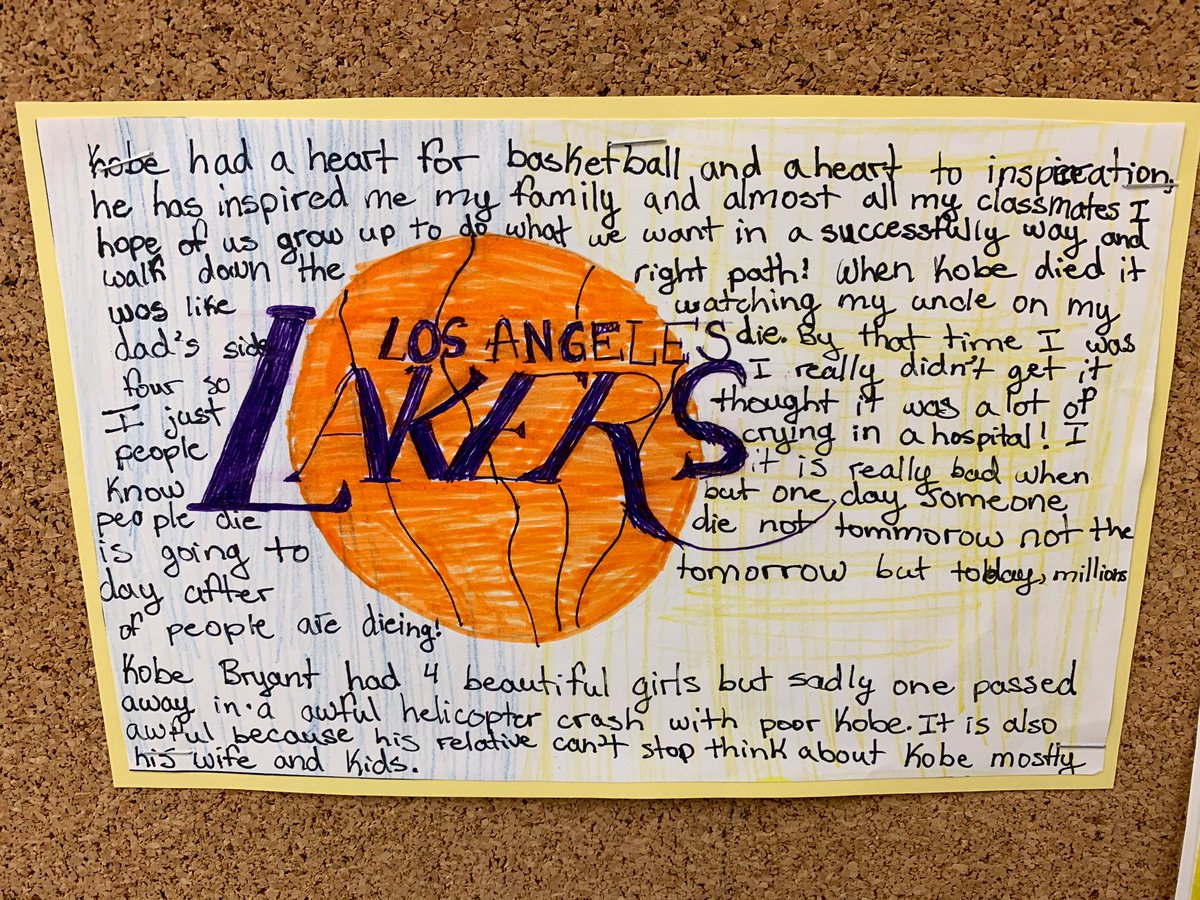 Kobe had a heart for basketball and a heart to inspiecation.
he has inspired me my family and almost all my classmates I
hope of us grow up to do what we want in a successfully way and
walk down the right path! When Kobe died it
was like watching my uncle on my
dad's side die. By that time I was
four so I really didn't get it
I just thought it was a lot of
people crying in a hospital! I
know it is really bad when
people die but one day someone
is going to die not tommorow not the
day after tomorrow but today, millions
of people are dieing!
LOS ANGELES
LAKERS
Kobe Bryant had 4 beautiful girls but sadly one passed
away in a awful helicopter crash with poor Kobe. It is also
awful because his relative can't stop think about Kobe mostly
his wife and kids.